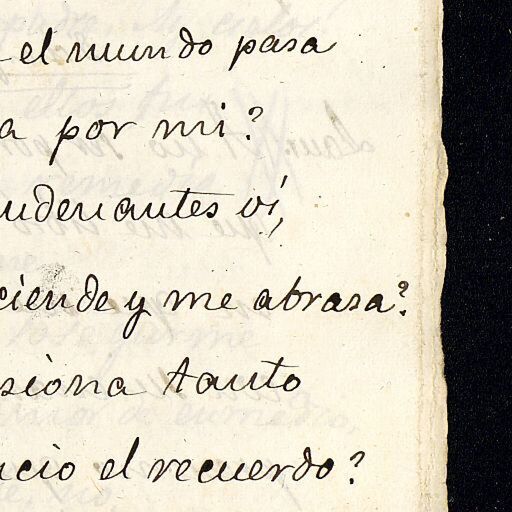 el mundo pasa
a por mi?
udenantes ví,
ciende y me abrasa?
siona tanto
ncio el recuerdo?